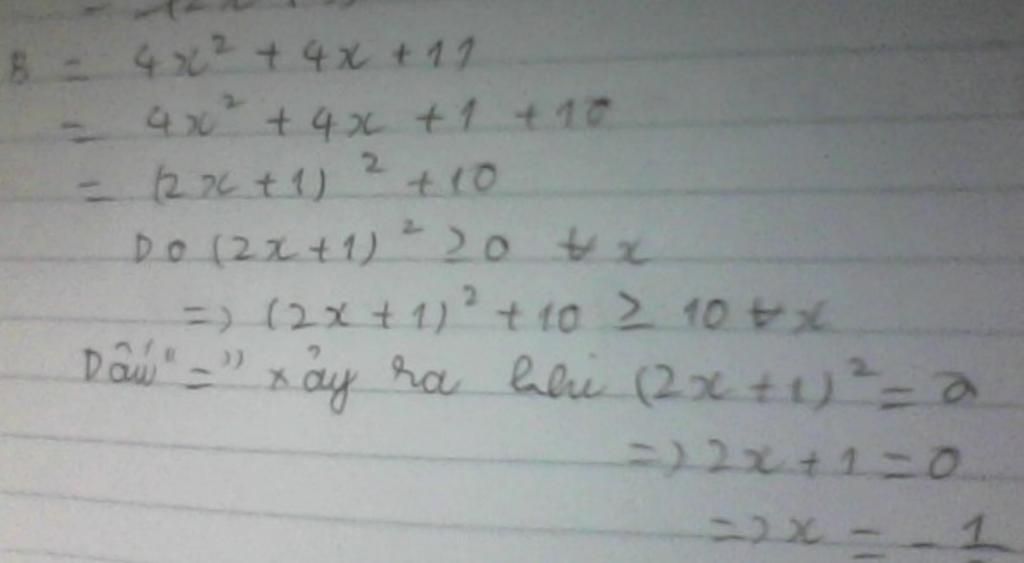 B = 4x² + 4x + 11
= 4x² + 4x + 1 + 10
= (2x + 1)² + 10
Do (2x + 1)² ≥ 0 ∀ x
=> (2x + 1)² + 10 ≥ 10 ∀ x
Dấu "=" xảy ra khi (2x + 1)² = 0
=> 2x + 1 = 0
=> x = - 1